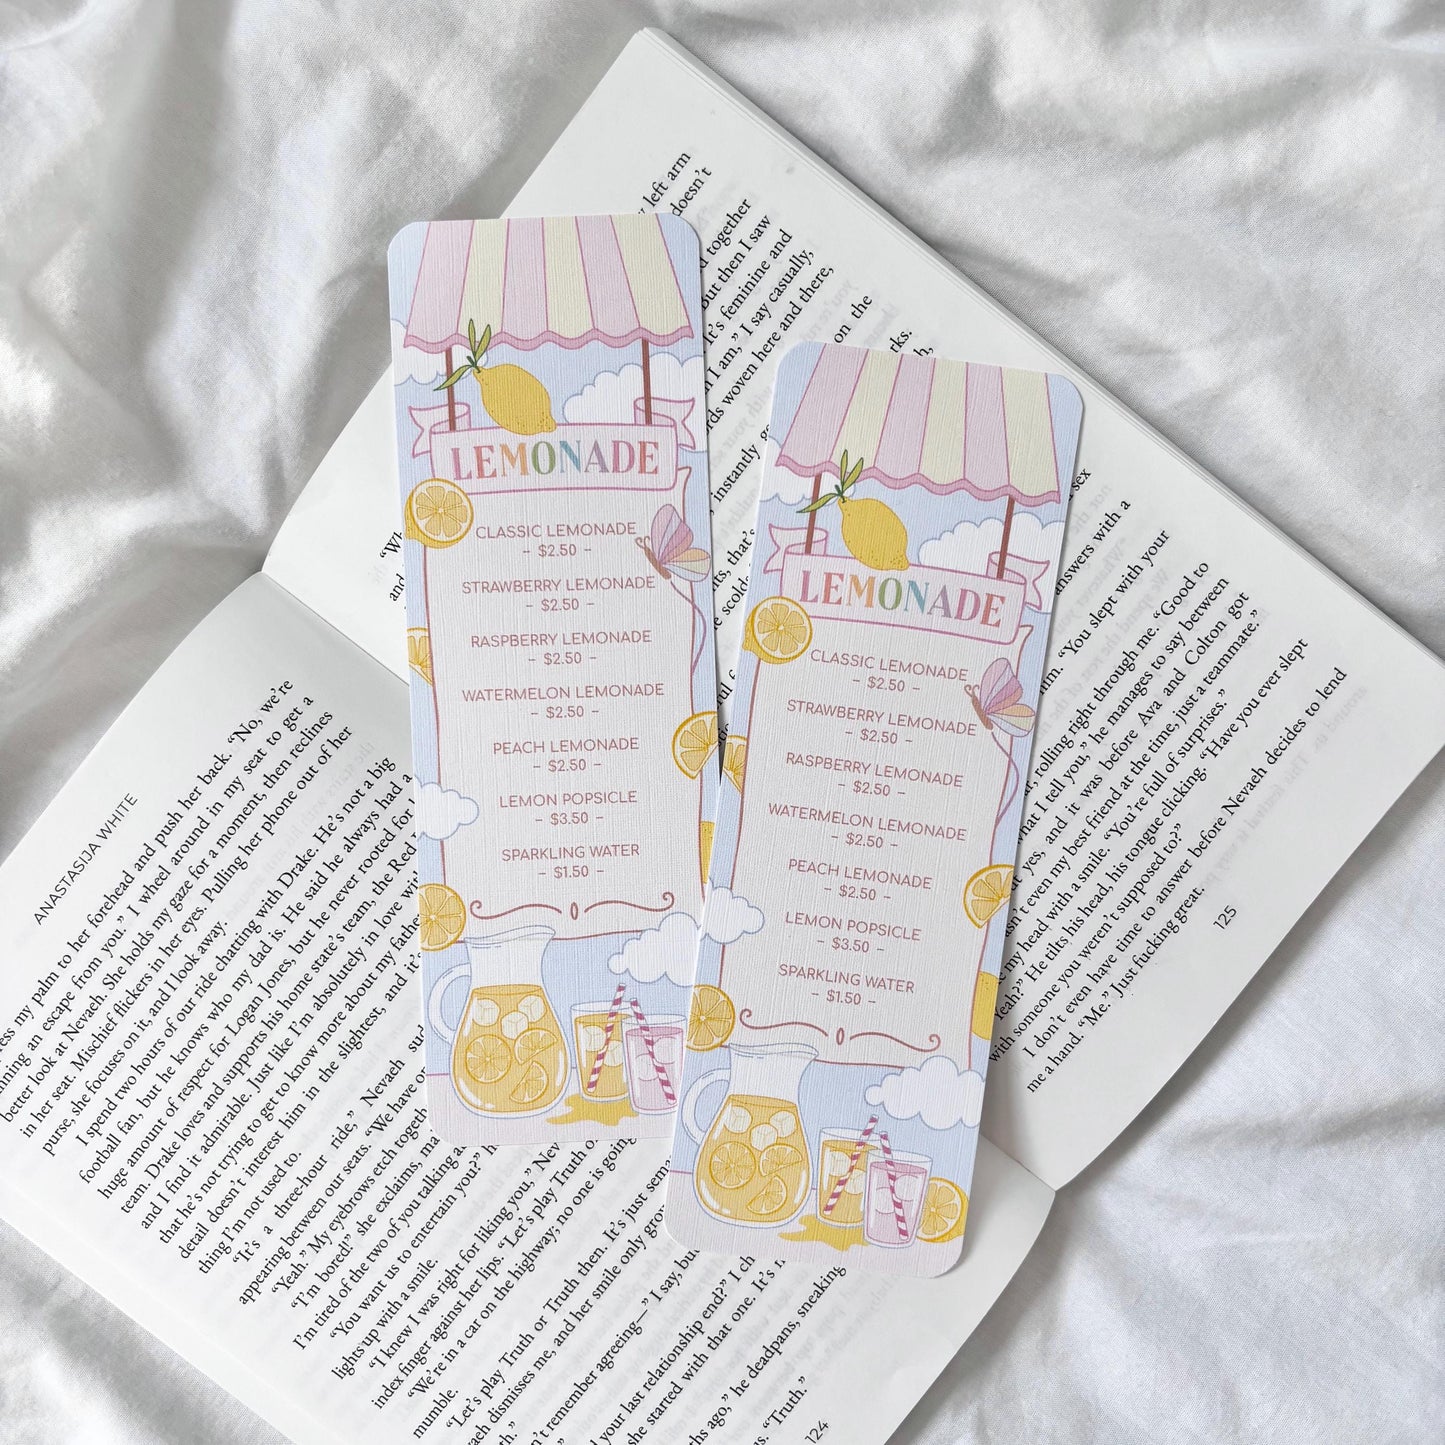 LEMONADE
CLASSIC LEMONADE
- $2.50 -
STRAWBERRY LEMONADE
- $2.50 -
RASPBERRY LEMONADE
- $2.50 -
WATERMELON LEMONADE
- $2.50 -
PEACH LEMONADE
- $2.50 -
LEMON POPSICLE
- $3.50 -
SPARKLING WATER
- $1.50 -
LEMONADE
CLASSIC LEMONADE
- $2.50 -
STRAWBERRY LEMONADE
- $2.50 -
RASPBERRY LEMONADE
- $2.50 -
WATERMELON LEMONADE
- $2.50 -
PEACH LEMONADE
- $2.50 -
LEMON POPSICLE
- $3.50 -
SPARKLING WATER
- $1.50 -
ANASTASIJA WHITE
my palm to her forehead and push her back. “No, we’re
an escape from you.” I wheel around in my seat to get a
better look at Nevaeh. She holds my gaze for a moment, then reclines
in her seat. Mischief flickers in her eyes. Pulling her phone out of her
purse, she focuses on it, and I look away.
I spend two hours of our ride chatting with Drake. He’s not a big
football fan, but he knows who my dad is. He said he always had a
huge amount of respect for Logan Jones, but he never rooted for
team. Drake loves and supports his home state’s team, the Red
and I find it admirable. Just like I’m absolutely in love with
that he’s not trying to get to know more about my father
detail doesn’t interest him in the slightest, and it’s
thing I’m not used to.
“It’s a three-hour ride,” Nevaeh
appearing between our seats. “We have
“Yeah.” My eyebrows etch
“I’m bored!” she exclaims,
I’m tired of the two of you talking
“You want us to entertain you?”
lights up with a smile.
“I knew I was right for liking you,”
index finger against her lips. “Let’s play Truth
“We’re in a car on the highway; no one is going
mumble.
“Let’s play Truth or Truth then. It’s just
dismisses me, and her smile only
remember agreeing—” I say, but
your last relationship end?” I
she started with that one. It’s
ago,” he deadpans, sneaking
“Truth.”
124
left arm
doesn’t
together
But then I saw
It’s feminine and
I am,” I say casually,
woven here and there,
on the
instantly
sex
answers with a
“You slept with your
rolling right through me. “Good to
what I tell you,” he manages to say between
yes, and it was before Ava and Colton got
even my best friend at the time, just a teammate.”
my head with a smile. “You’re full of surprises.”
He tilts his head, his tongue clicking. “Have you ever slept
with someone you weren’t supposed to?”
I don’t even have time to answer before Nevaeh decides to lend
me a hand. “Me.” Just fucking great.
125